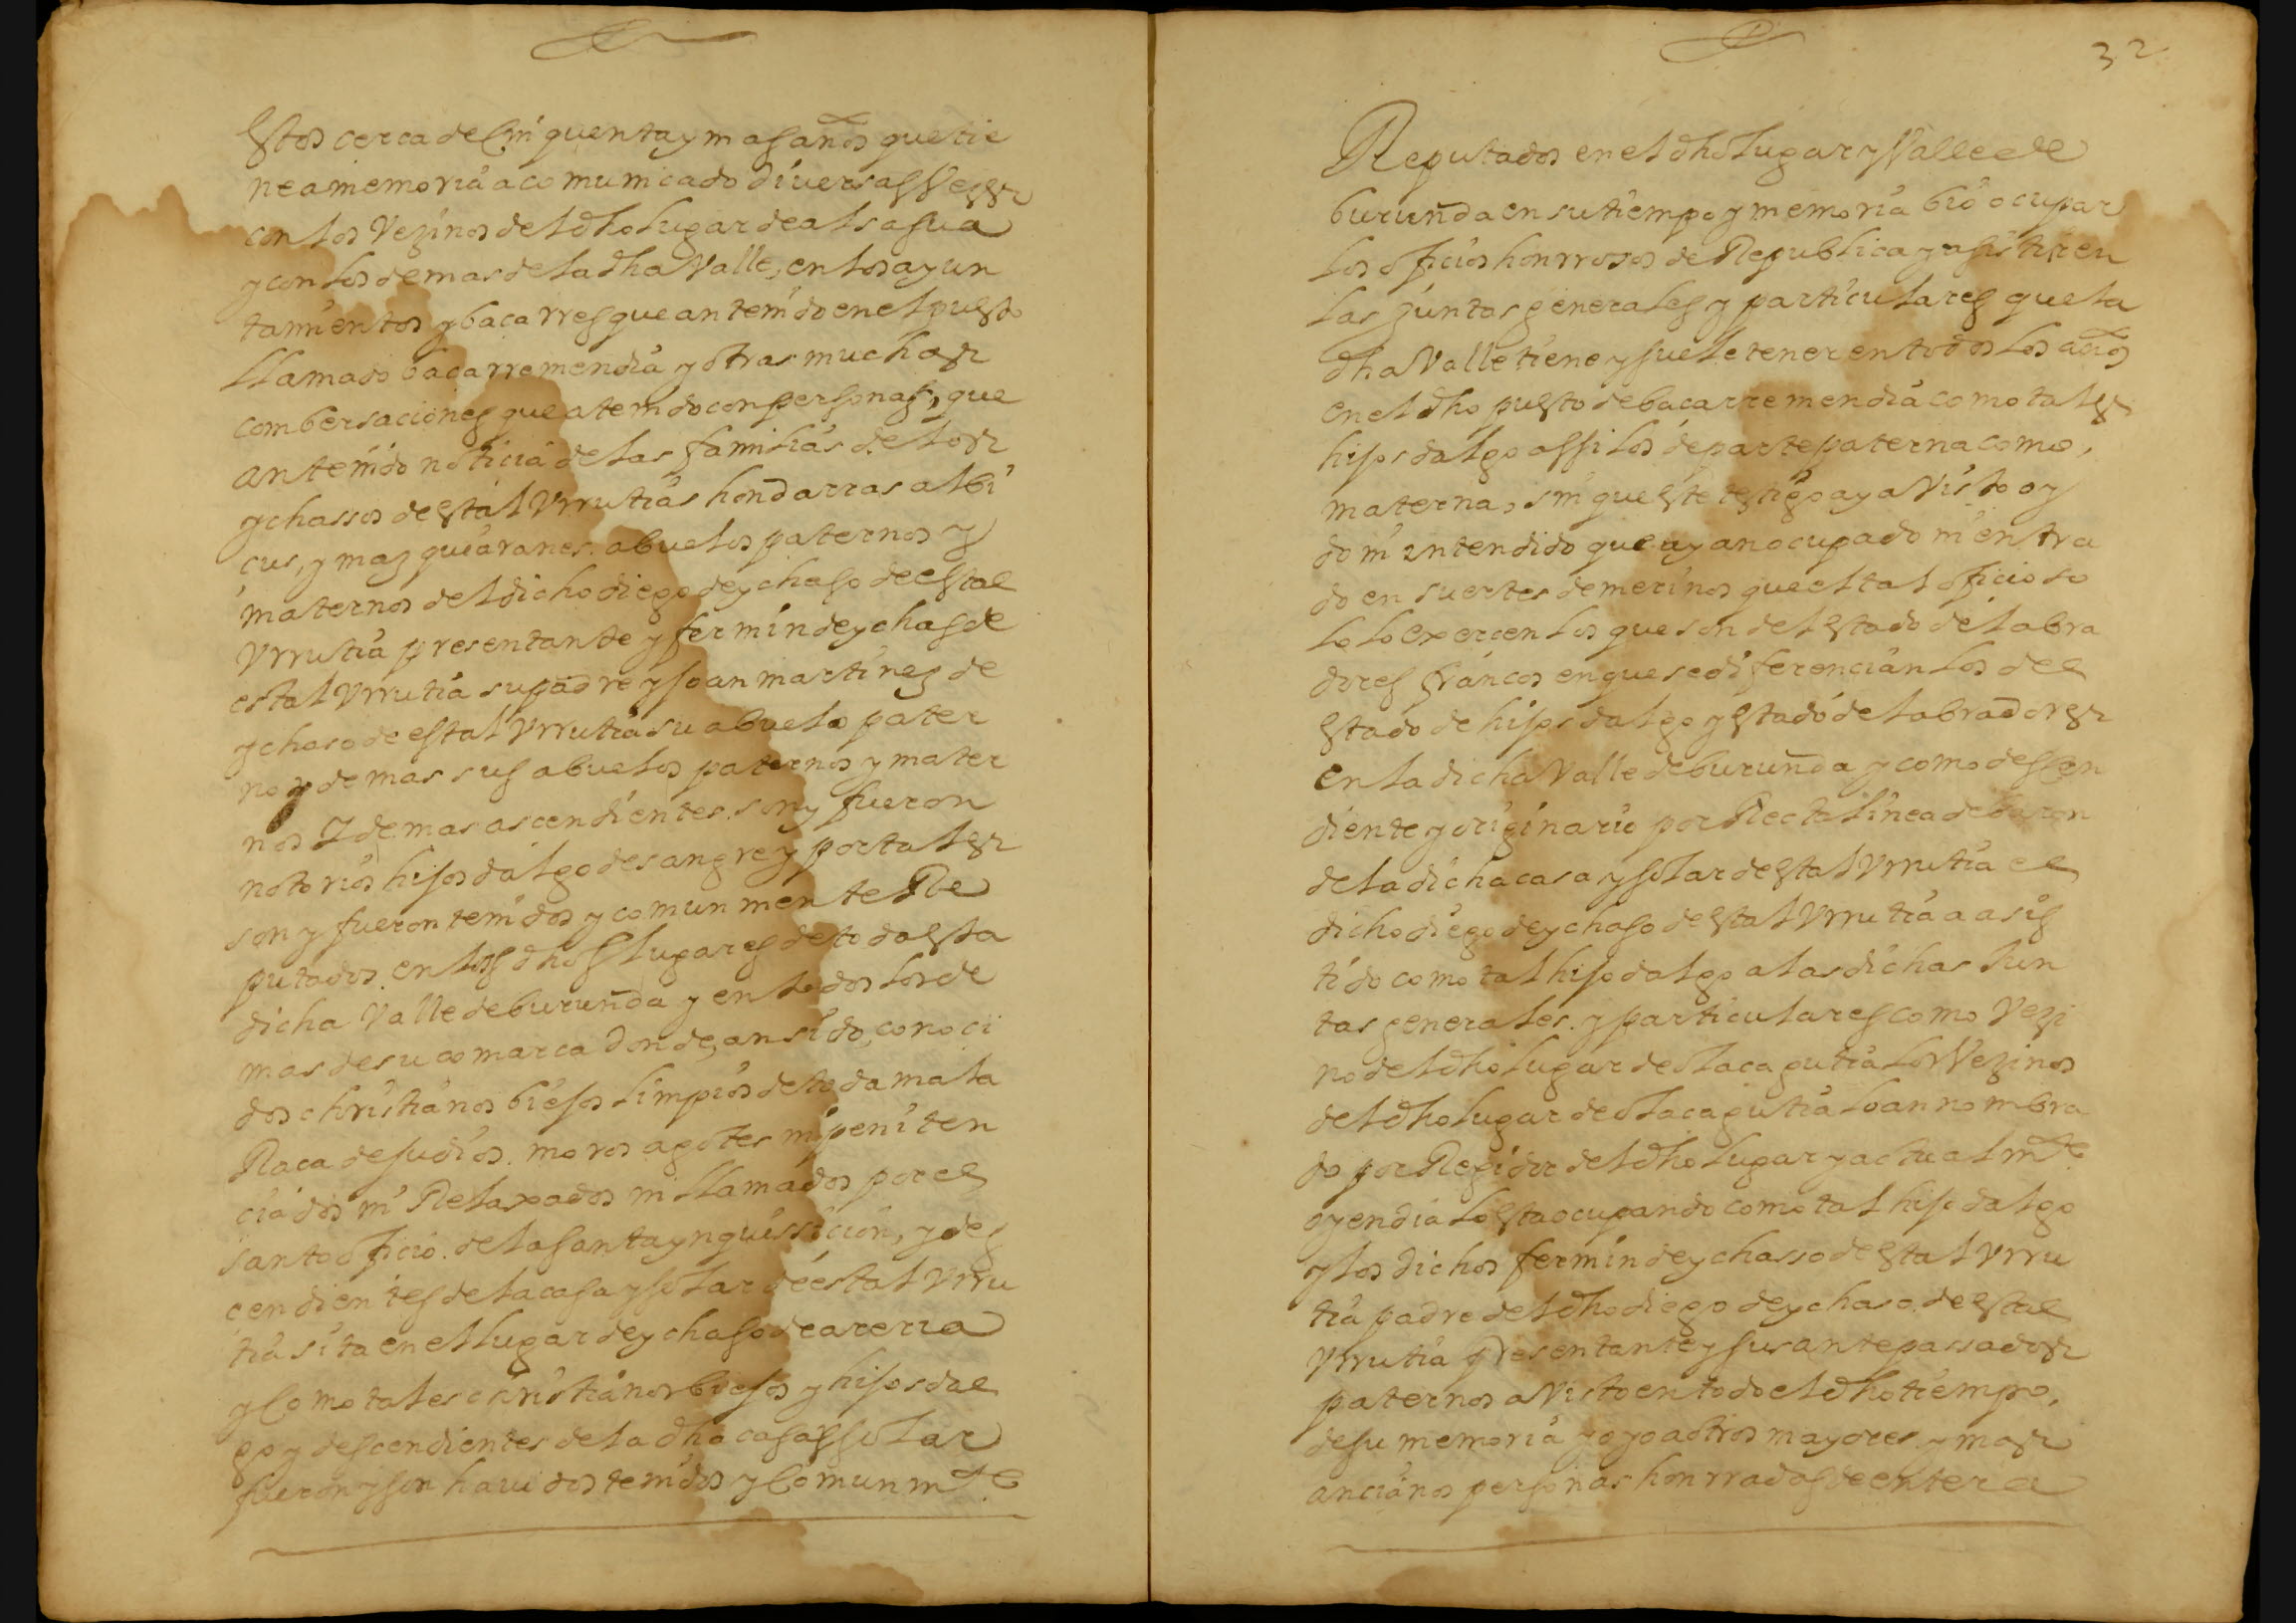 estos cerca de cinquenta y mas años que tie
ne a memoria a comunicado diversas vezes
con los vezinos del dho lugar de alsasua
y con los demas de la dha Valle, en los ayun
tamientos y bacarres que an tenido en el puesto
llamado bacarremendia y otras muchas
combersaciones que a tenido con personas, que
an tenido noticia de las familias de los
ychassos de estal Vrrutias hondarras albi
cus, y mazquiaranes. abuelos paternos y
maternos del dicho diego de ychaso de estal
Vrrutia presentante y fermin de ychaso de
estal Vrrutia su padre y joan martinez de
ychaso de estal Vrrutia su abuelo pater
no y demas sus abuelos paternos y mater
nos I demas ascendientes. son y fueron
notorios hijosdalgo de sangre y por tales
son y fueron tenidos y comunmente Re
putados. en los dhos lugares de toda esta
dicha Valle de burunda y en todos los de
mas de su comarca donde, an sido, conoci
dos christianos biejos limpios de toda mala
Raca de judios. moros agotes ni peniten
ciados ni Relaxados ni llamados por el
santo oficio. de la santa ynquissicion, y des
cendientes de la casa y solar de estal Vrru
tia sita en el lugar de ychaso de areria
y Como tales christianos biejos y hijosdal
go y descendientes de la dha casa y ssolar
fueron y son havidos tenidos y Comunmte
32
Reputados en el dho lugar y Valle de
burunda en su tiempo y memoria bio ocupar
los oficios honrrosos de Republica y asistir en
las juntas generales y particulares que la
dha Valle tiene y suele tener en todos los años
en el dho puesto de bacarremendia como tales
hijosdalgo assi los de parte paterna como,
materna, sin que este testigo aya visto oy
do ni entendido que ayan ocupado ni entra
do en suertes de merinos que el tal oficio so
lo lo exercen los que son del estado de labra
dores francos en que se diferencian los del
estado de hijosdalgo y estado de labradores
en la dicha Valle de burunda y como dessen
diente y originario por Recta linea de baron
de la dicha casa y solar de estal Vrrutia el
dicho diego de ychaso de estal Vrrutia a asis
tido como tal hijodalgo a las dichas Iun
tas generales. y particulares como Vezi
no del dho lugar de olacagutia los Vezinos
del dho lugar de olacagutia lo an nombra
do por Regidor del dho lugar y actualmte
oy en dia lo esta ocupando como tal hijodalgo
y los dichos fermin de ychasso de estal Vrru
tia padre del dho diego de ychaso. de estal
Vrrutia presentante y sus antepassados
paternos a visto en todo el dho tiempo,
de su memoria y oyo a otros mayores. y mas
ancianos personas honrradas de entera